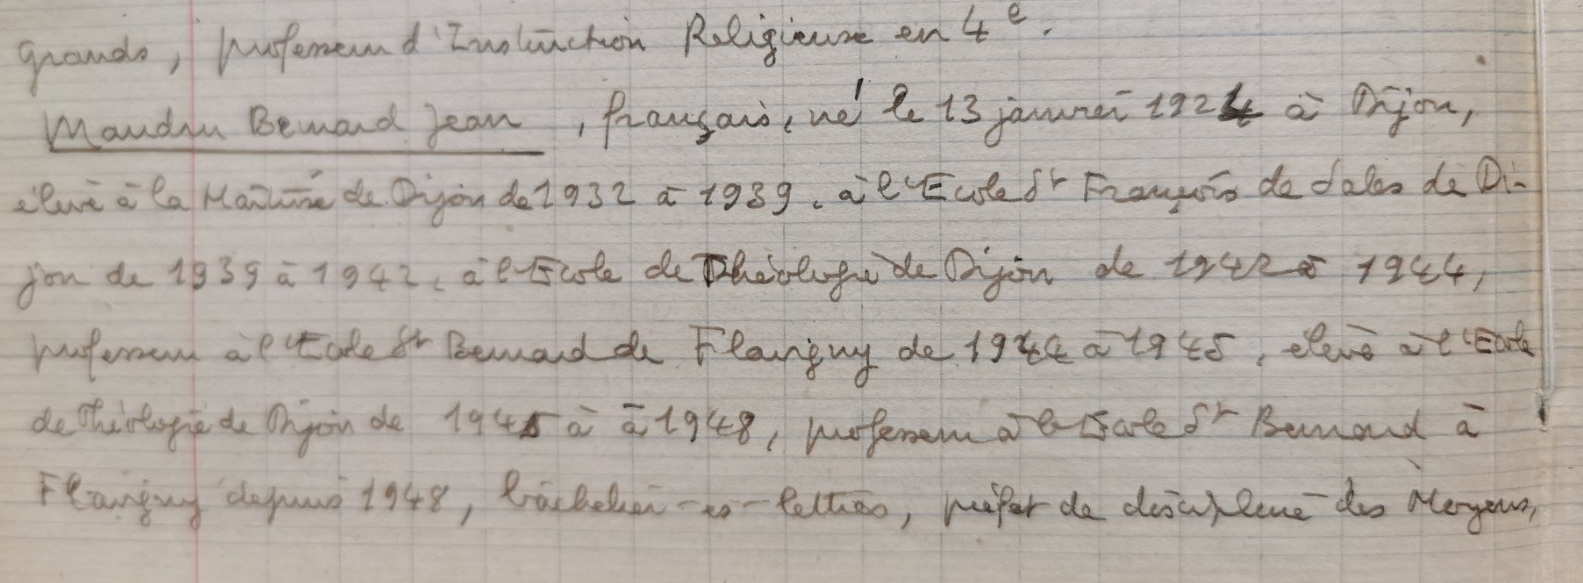 grands, professeur d'Instruction Religieuse en 4e.
Maudru Bernard Jean, français, né le 13 janvier 1924 à Dijon,
élève à la Maîtrise de Dijon de 1932 à 1939, à l'Ecole St François de Sales de Di-
jon de 1939 à 1942, à l'Ecole de Théologie de Dijon de 1942 à 1944,
professeur à l'Ecole St Bernard de Flavigny de 1944 à 1945, élève à l'Ecole
de Théologie de Dijon de 1945 à à 1948, professeur à l'Ecole St Bernard à
Flavigny depuis 1948, bachelier-es-lettres, préfet de discipline des Moyens,